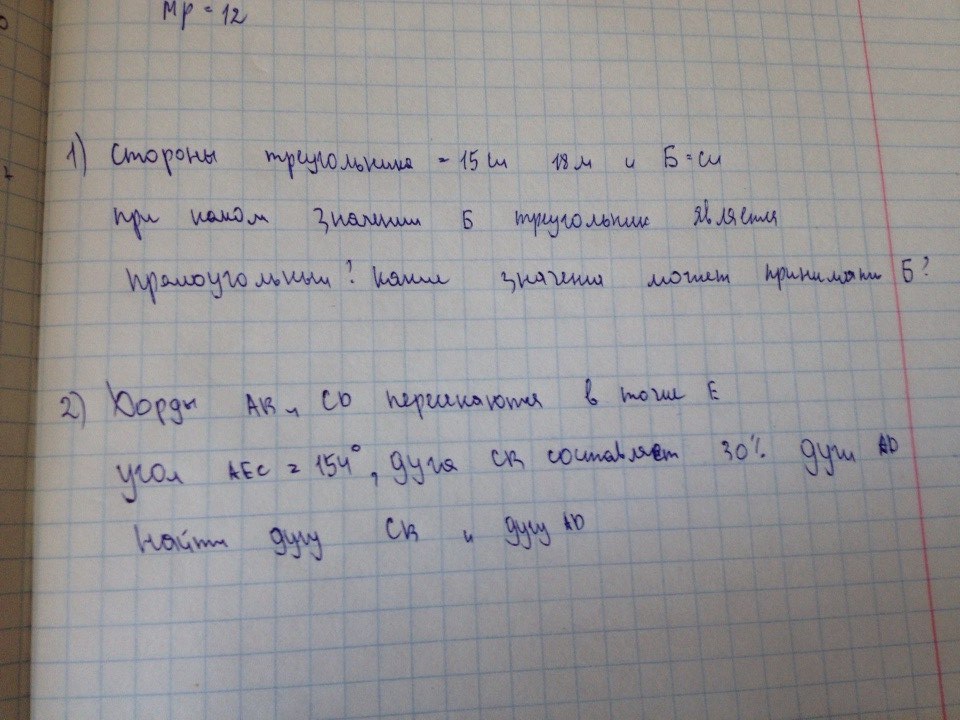 Mp = 12
1) Стороны треугольника = 15 см 18 м и Б = см
при каком значении Б треугольник является
прямоугольным? Какие значения может принимать Б?
2) Хорды AB и CD пересекаются в точке E
угол AEC = 154°, дуга CB составляет 30% дуги AD
Найти дугу CB и дугу AD